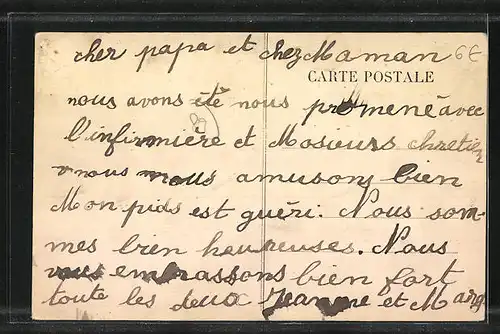 cher papa et cher Maman 6€
CARTE POSTALE
nous avons été nous promené avec
l'infirmière et Mosieurs chretien
nous nous amusons bien
Mon pids est guéri. Nous som-
mes bien heureuses. Nous
vous embrassons bien fort
toute les deux Jeanne et Marg